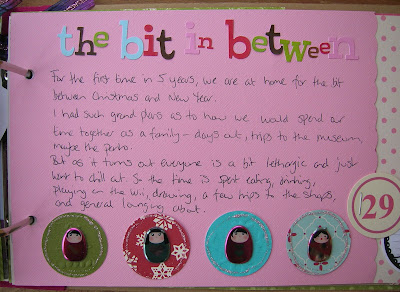 the bit in between
For the first time in 5 years, we are at home for the bit
between Christmas and New Year.
I had such grand plans as to how we would spend our
time together as a family - days out, trips to the museum,
maybe the panto.
But as it turns out everyone is a bit lethargic and just
want to chill out. So the time is spent eating, drinking,
playing on the wii, drawing, a few trips to the shops,
and general lounging about.
29